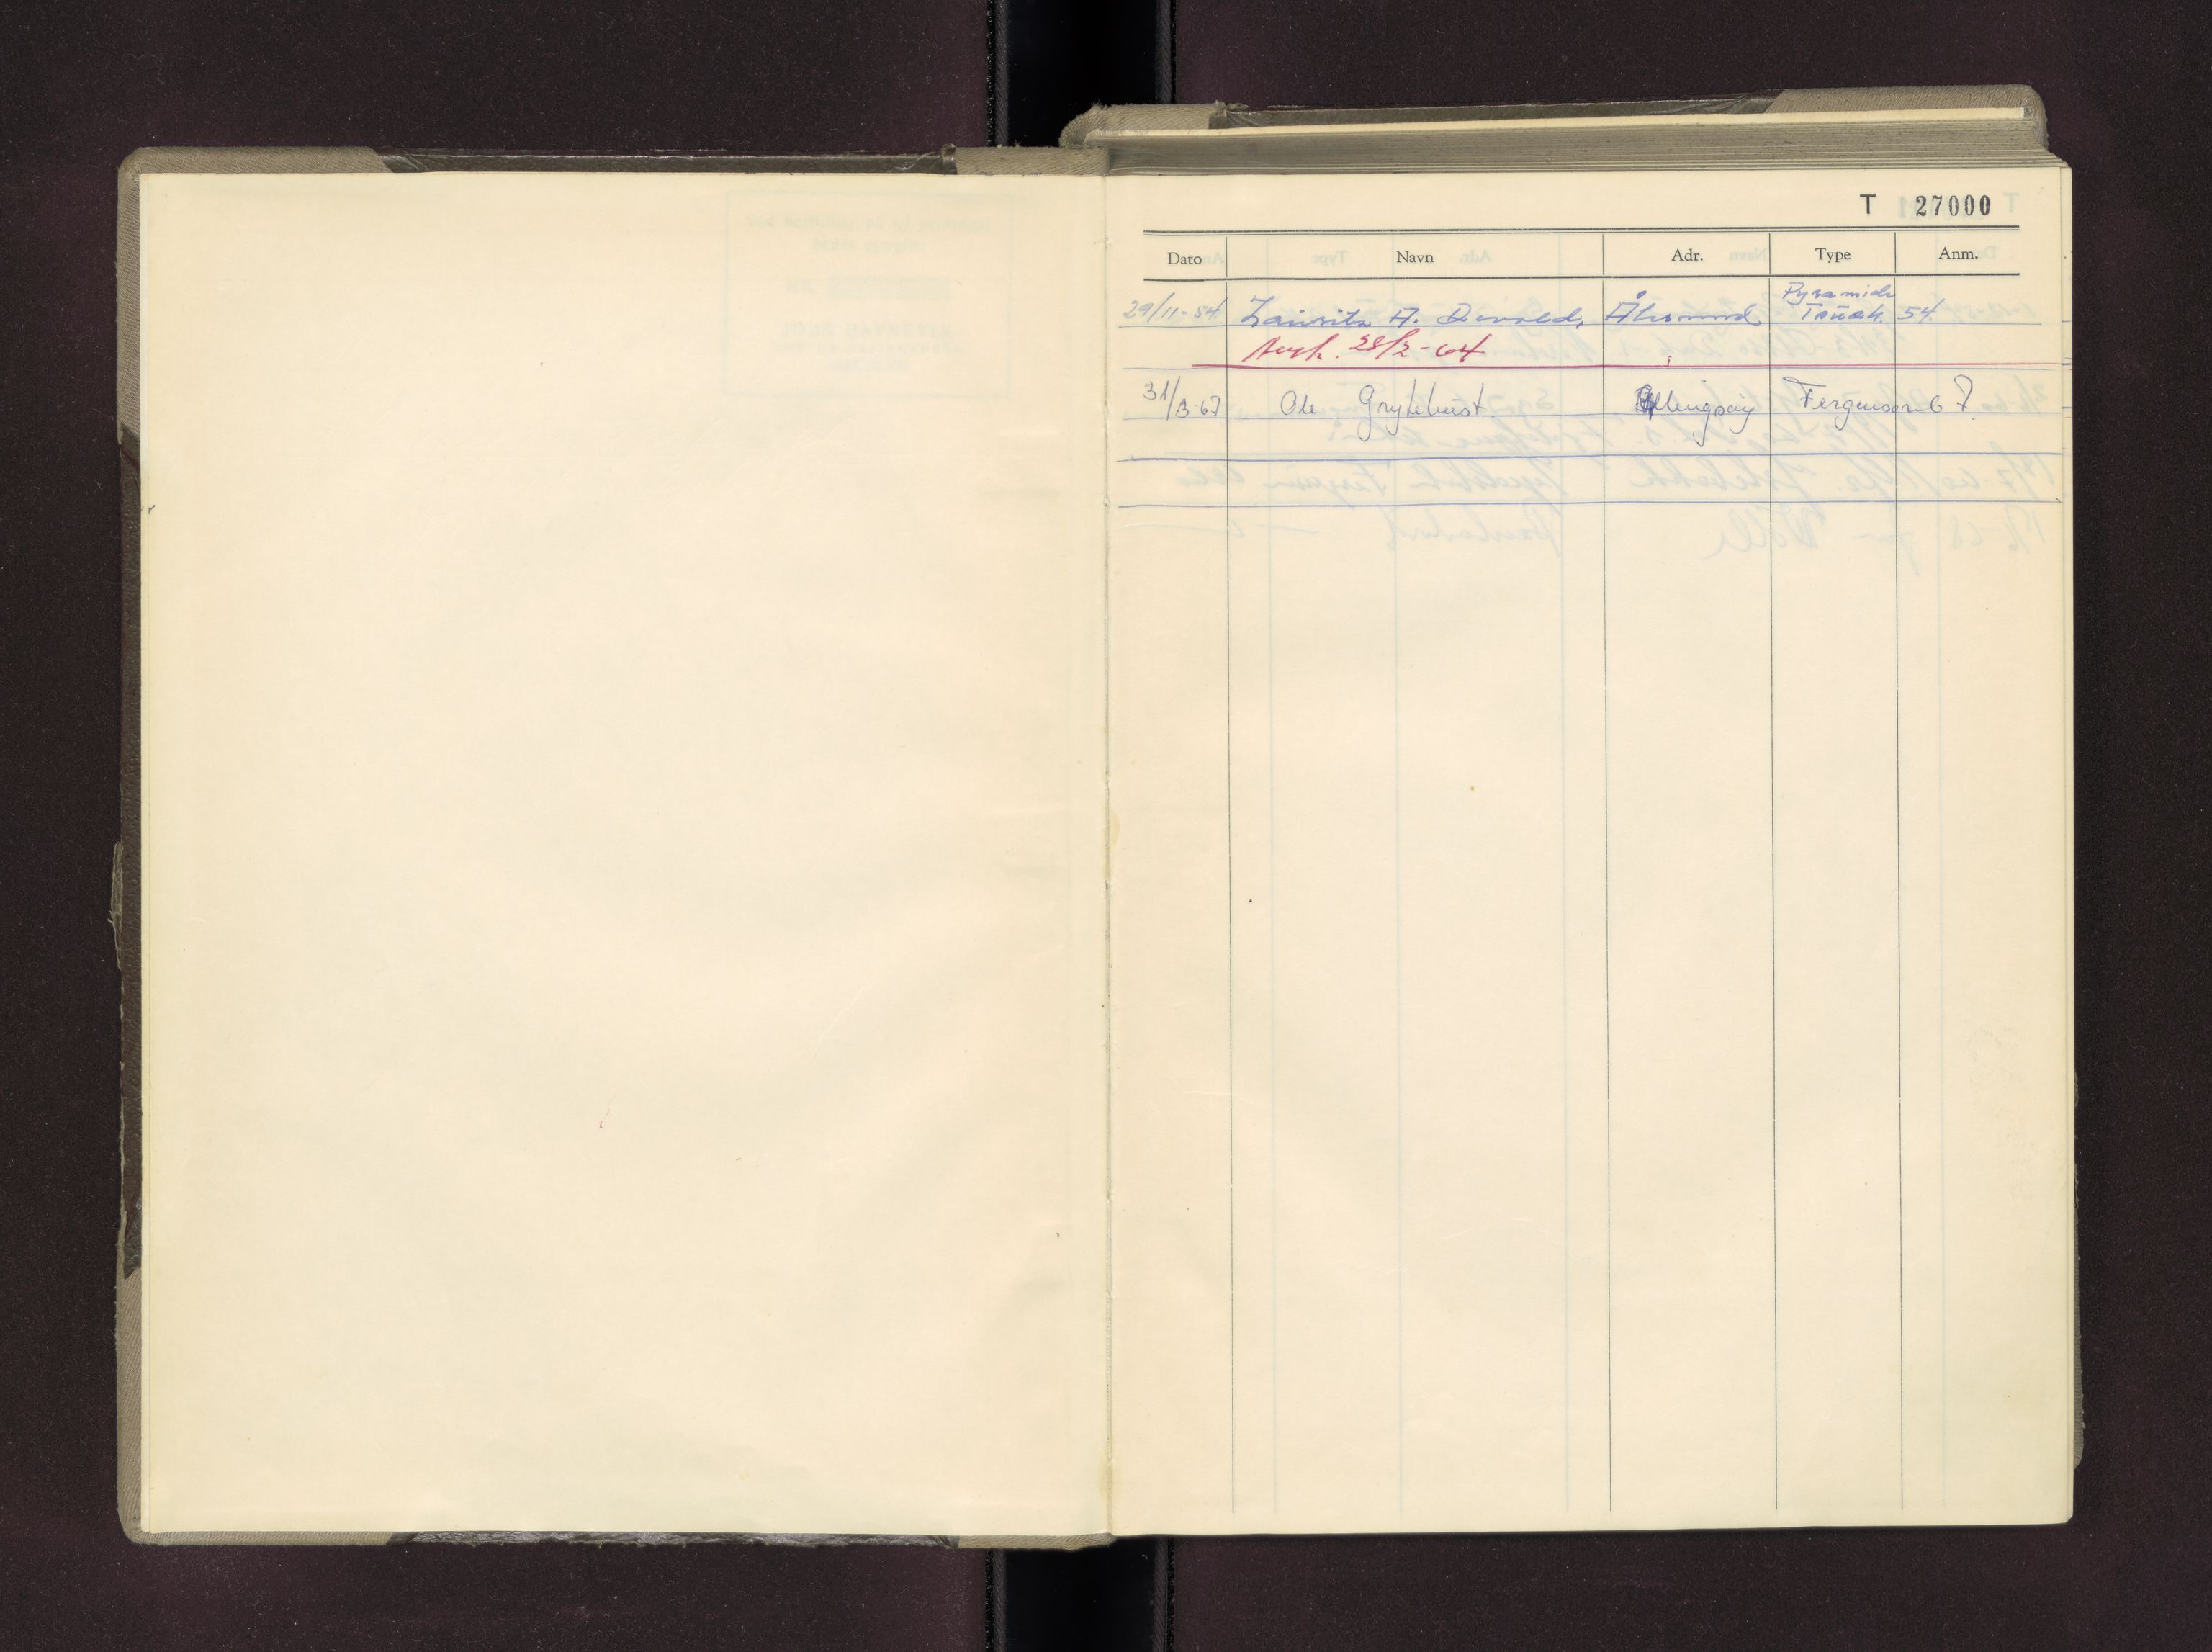 T 27000
Dato Navn Adr. Type Anm.
Pyramide
29/11-54 Lauritz A. Åhsmund Truck 54
Avsk. 28/2-64
31/3-67 Ole Grytebust Ellingsøy Ferguson 67.